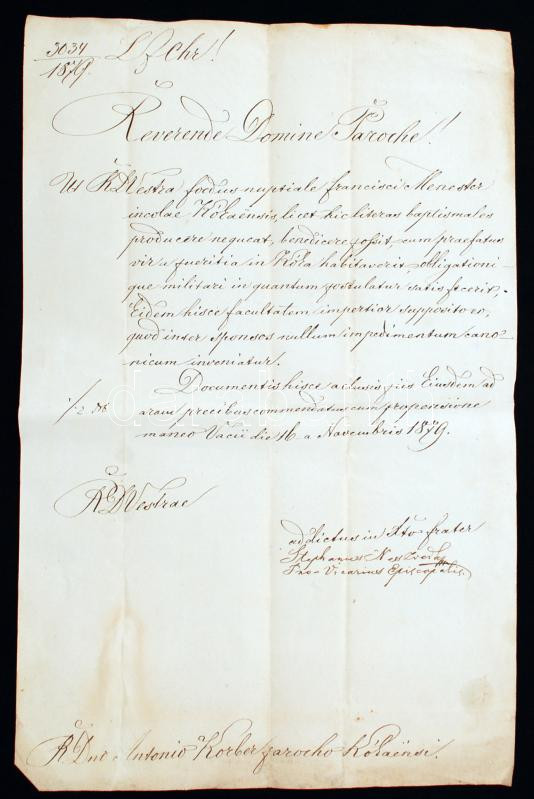 3034
1879.
L. J. Chr!
Reverende Domine Paroche!
Ut R. D. Vestra foedus nuptiale Francisci Menester
incolae Kókaënsis, licet hic literas baptismales
producere nequeat, benedicere possit, cum praefatus
vir a pueritia in Kóka habitaverit obligationi-
que militari in quantum postulatur satisfecerit, -
Eidem hisce facultatem impertior supposito eo,
quod inter sponsos nullum impedimentum cano-
nicum inveniatur.
Documentis hisce aclusis, piis Eiusdem ad
aram precibus commendatus cum propensione
maneo Vacii die 16-a Novembris 1879.
R. D. Vestrae
addictus in Xto frater
Stephanus
Pro-Vicarius Episcopalis
R. Dno Antonio Korber parocho Kókaënsi.